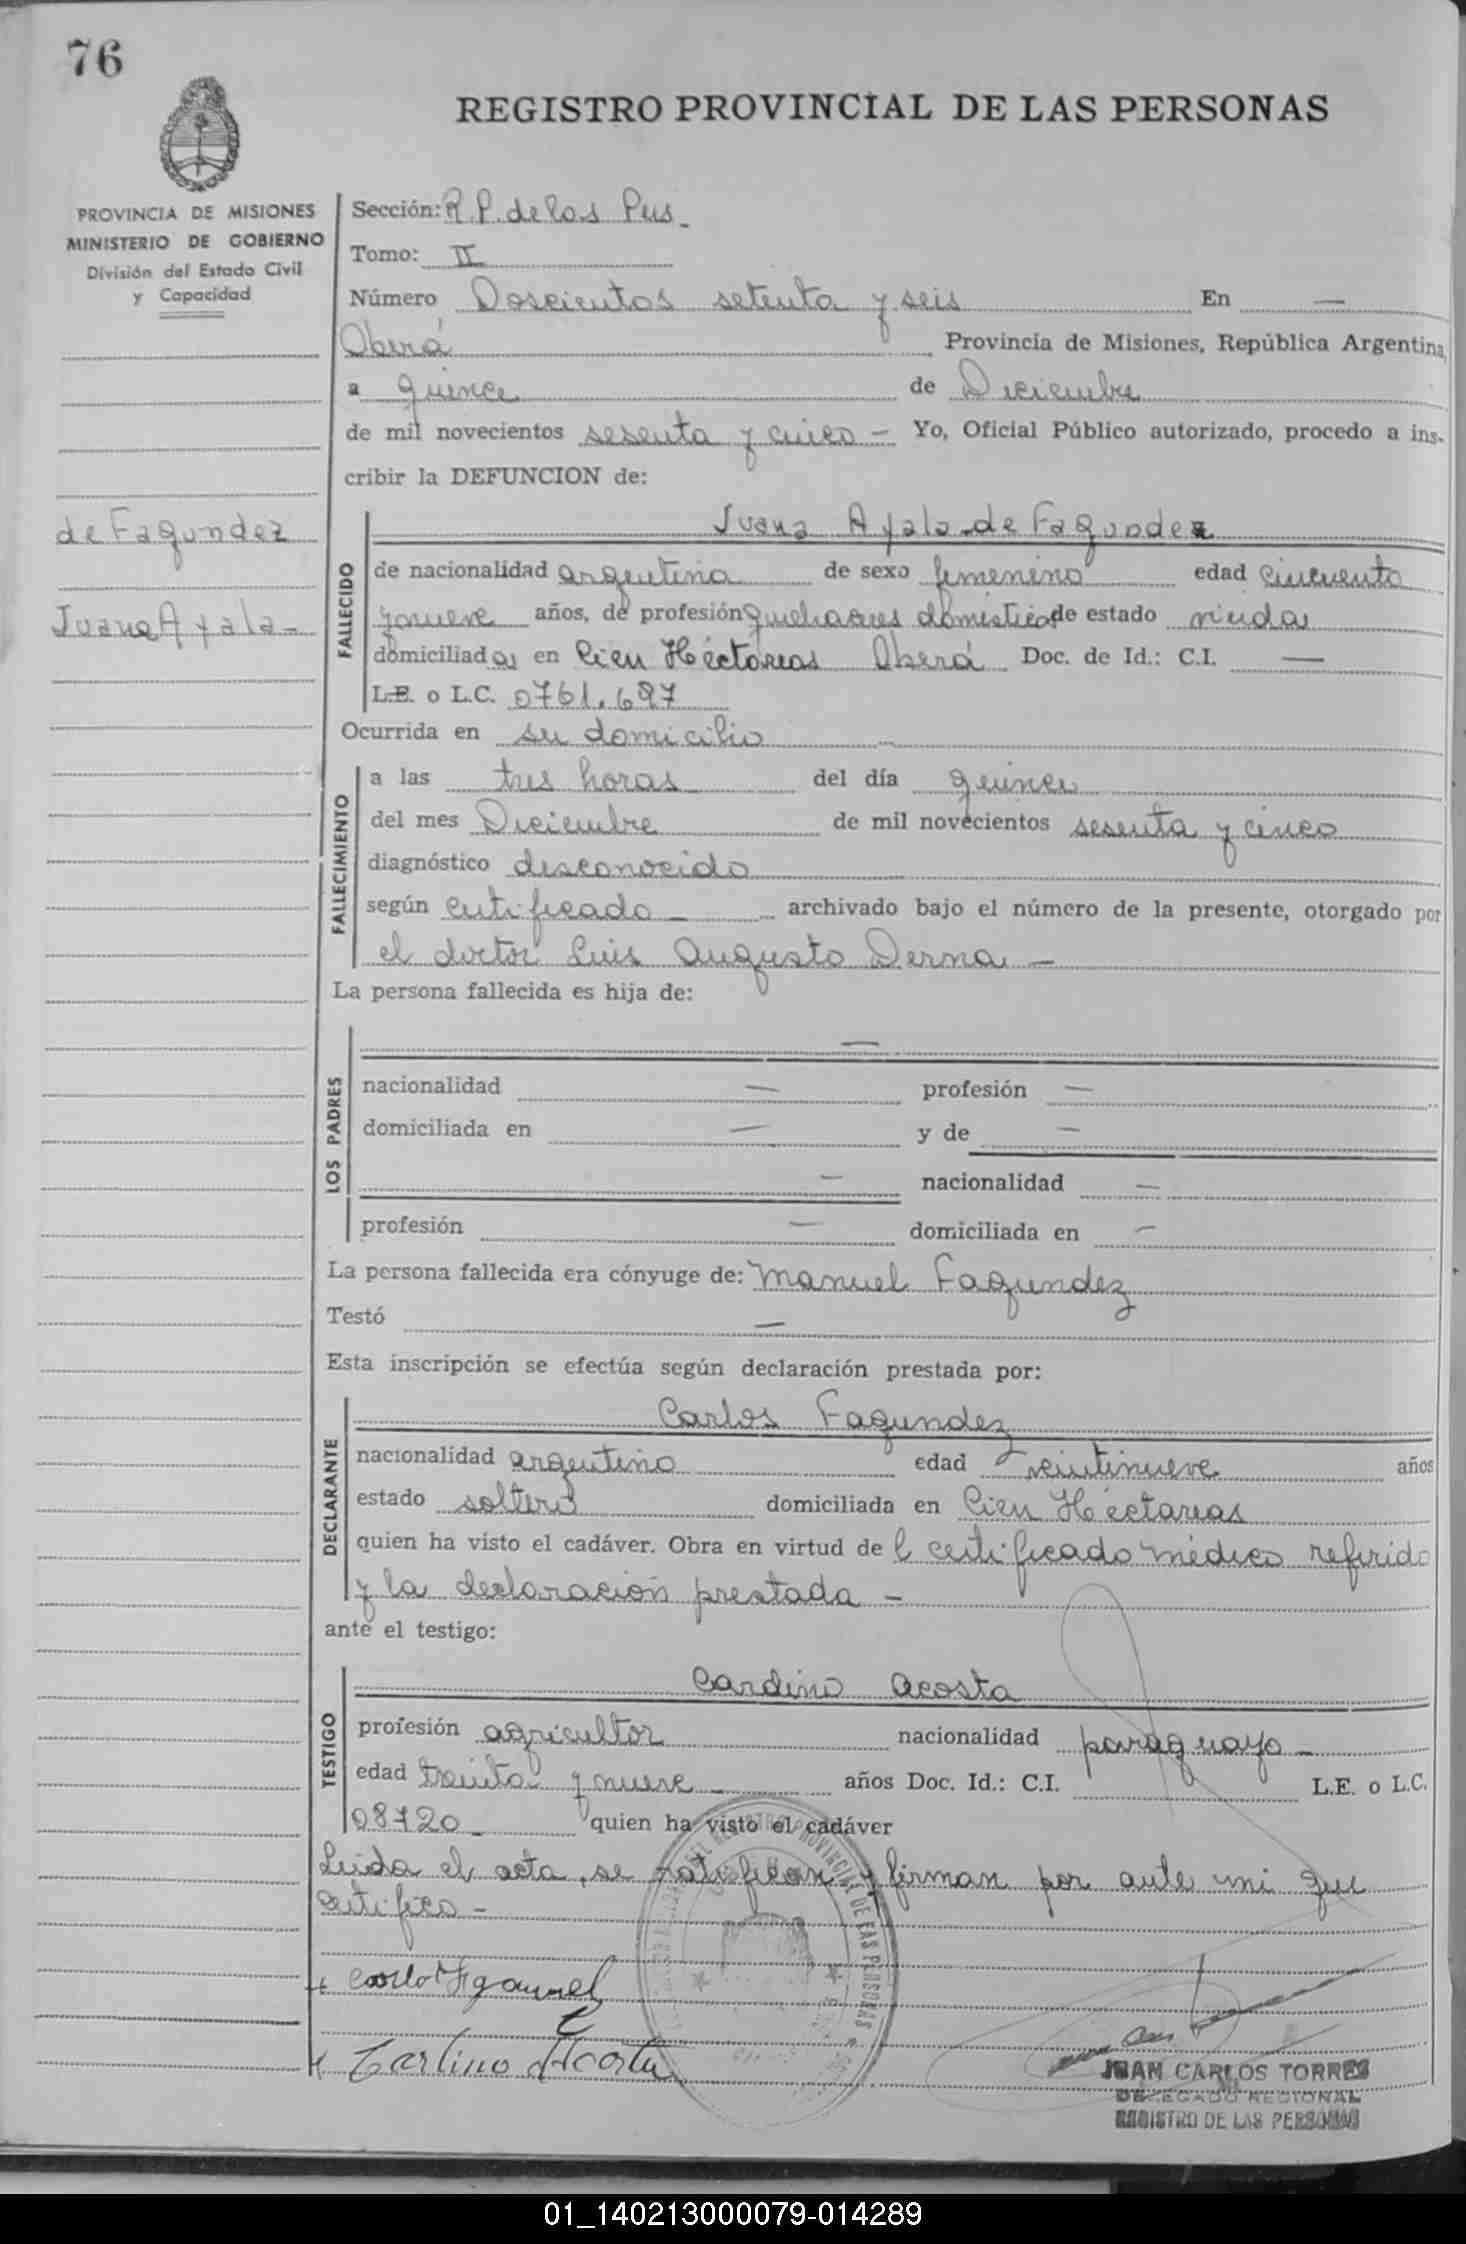 76
REGISTRO PROVINCIAL DE LAS PERSONAS
PROVINCIA DE MISIONES
MINISTERIO DE GOBIERNO
División del Estado Civil
y Capacidad
de Fagundez
Juana Ayala-
Sección: R.P. de las Pers.
Tomo: II
Número Doscientos setenta y seis En —
Oberá Provincia de Misiones, República Argentina,
a quince de Diciembre
de mil novecientos sesenta y cinco - Yo, Oficial Público autorizado, procedo a ins-
cribir la DEFUNCION de:
FALLECIDO
Juana Ayala de Fagundez
de nacionalidad argentina de sexo femenino edad cincuenta
y nueve años, de profesión quehaceres domésticos de estado viuda
domiciliada en Cien Héctareas Oberá Doc. de Id.: C.I. —
L.E. o L.C. 0761.697
Ocurrida en su domicilio
FALLECIMIENTO
a las tres horas del día quince
del mes Diciembre de mil novecientos sesenta y cinco
diagnóstico desconocido
según certificado - archivado bajo el número de la presente, otorgado por
el doctor Luis Augusto Derna -
La persona fallecida es hija de:
LOS PADRES
—
nacionalidad — profesión —
domiciliada en — y de —
— nacionalidad —
profesión — domiciliada en —
La persona fallecida era cónyuge de: Manuel Fagundez
Testó —
Esta inscripción se efectúa según declaración prestada por:
DECLARANTE
Carlos Fagundez
nacionalidad argentino edad veintinueve años
estado soltero domiciliada en Cien Héctareas
quien ha visto el cadáver. Obra en virtud de l certificado médico referido
y la declaración prestada -
ante el testigo:
TESTIGO
Cardino Acosta
profesión agricultor nacionalidad paraguayo -
edad treinta y nueve - años Doc. Id.: C.I. L.E. o L.C.
08720 - quien ha visto el cadáver
Leida el acta, se ratifican y firman por ante mi que
certifico -
Carlino Acosta
JUAN CARLOS TORRES
DELEGADO REGIONAL
REGISTRO DE LAS PERSONAS
01_140213000079-014289